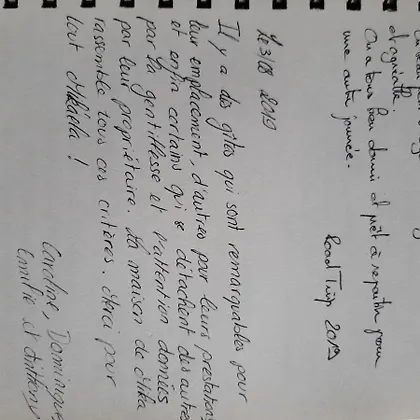 et agréable.
On a tous bien dormi et prêt à repartir pour
une autre journée.
Road Trip 2019
Le 3/08 2019
Il y a des gîtes qui sont remarquables pour
leur emplacement, d'autres pour leurs prestations
et enfin certains qui se détachent des autres
par la gentillesse et l'attention données
par leur propriétaire. La maison de Mika
rassemble tous ces critères. Merci pour
tout Mikaela !
Caroline, Dominique,
Emilie et Anthony